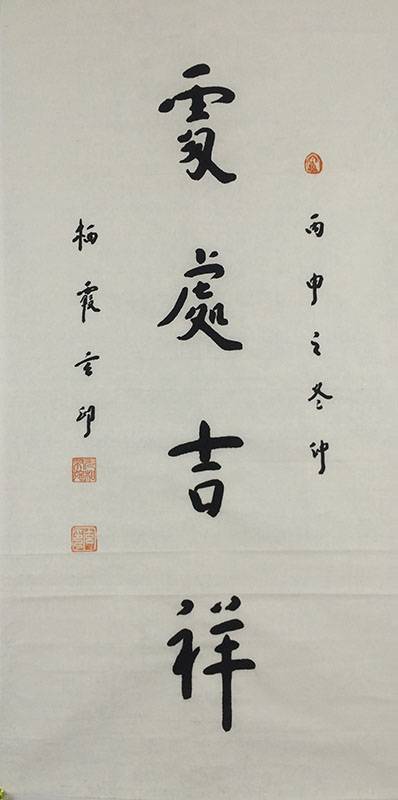 丙申之冬仲
處處吉祥
栖霞玄印